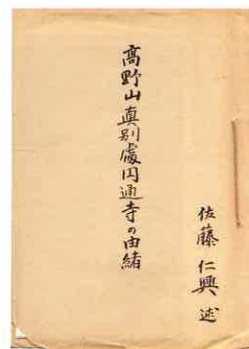 高野山真別處円通寺の由緒
佐藤仁興述